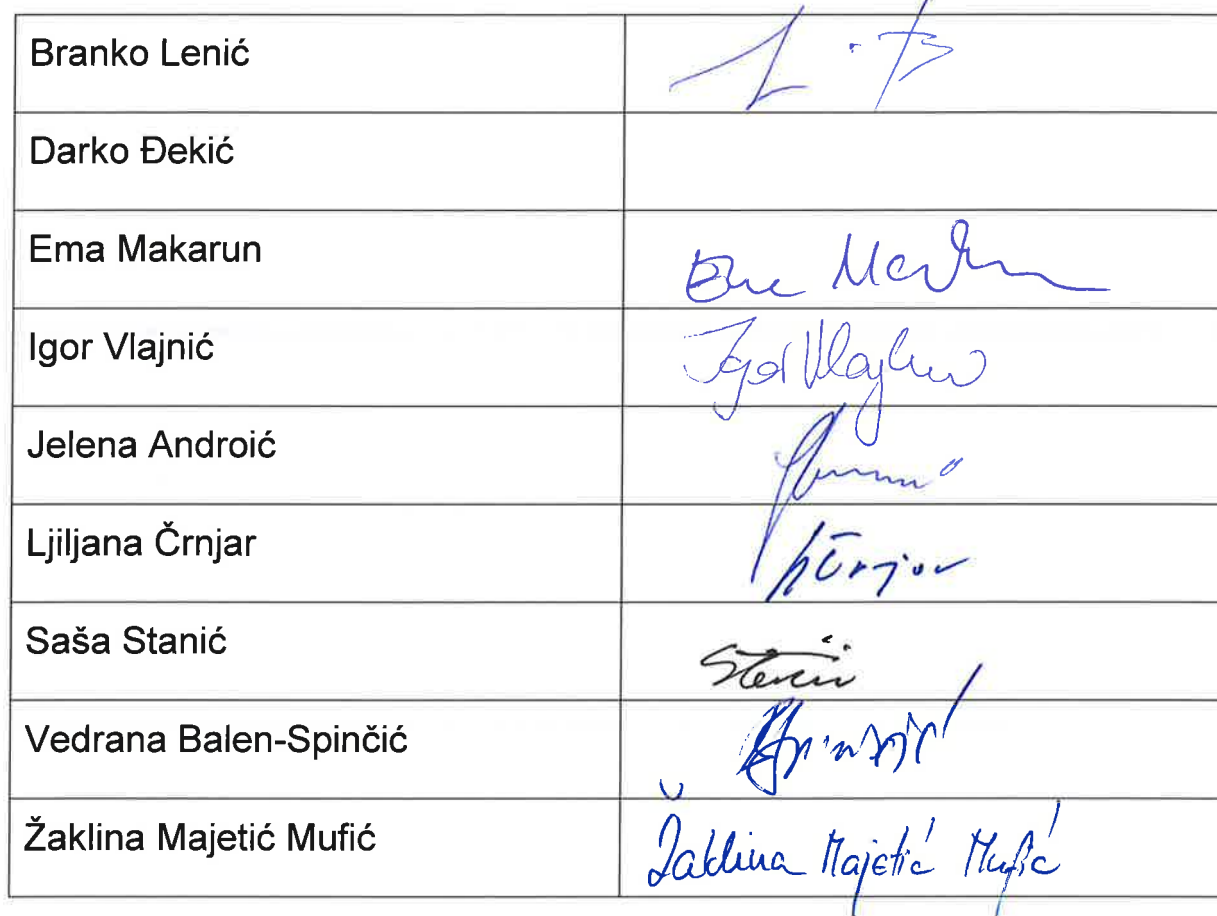 Branko Lenić
Darko Đekić
Ema Makarun
Igor Vlajnić
Igor Vlajnić
Jelena Androić
Ljiljana Črnjar
Saša Stanić
Vedrana Balen-Spinčić
Žaklina Majetić Mufić
Žaklina Majetić Mufić